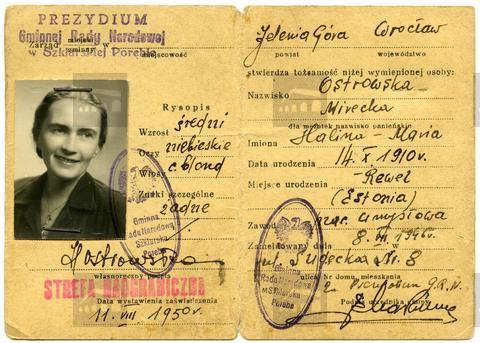 PREZYDIUM
Gminnej Rady Narodowej
w Szklarskiej Porębie
Zarząd miejski w
gminny
miejscowość
Rysopis
Wzrost średni
Oczy niebieskie
Włosy c. blond
Znaki szczególne
żadne
Gminna
Rada Narodowa
Szklarska
Poręba
HOstrowska
własnoręczny podpis
STREFA NADGRANICZNA
Data wystawienia zaświadczenia
11. VIII 1950 r.
Jelenia Góra Wrocław
powiat województwo
stwierdza tożsamość niżej wymienionej osoby:
Nazwisko Ostrowska-
Mirecka
dla mężatek nazwisko panieńskie
Imiona Halina-Maria
Data urodzenia 14. X 1910 r.
Miejsce urodzenia Rewel
(Estonia)
Zawód prac. umysłowa
Zameldowany dnia 8. III. 1946 r. w
ul. Sudecka Nr. 8
ulica Nr domu mieszkania
Gminna
Rada Narodowa
Szklarska
Poręba
z Prezydium G.R.N.
Podpis urzędnika gminy